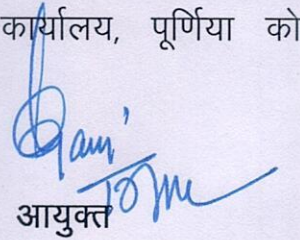 कार्यालय, पूर्णिया को
आयुक्त